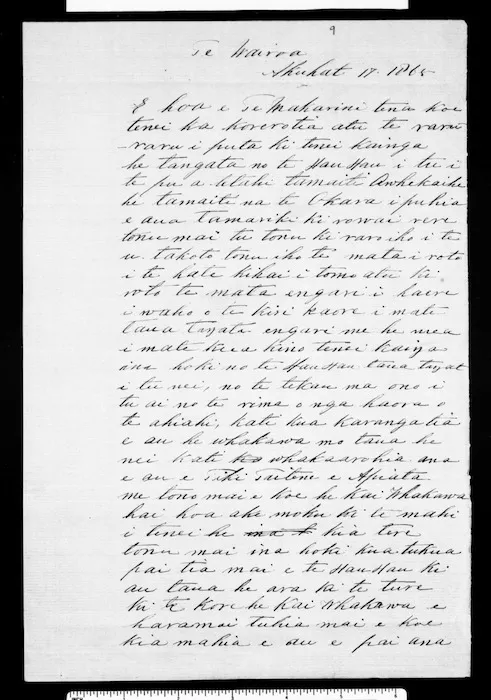 9
Te Wairoa
Akuhat 17. 1865
E hoa e Te Makarini tena koe
tenei ka korerotia atu te raru
-raru i puta ki tenei kainga
he tangata no te Hau Hau i tu i
te pu a tetahi tamaiti Anhekaihe
he tamaiti na te Okara i puhia
e aua tamariki ki rowai rere
tonu mai tu tonu ki raro iho i te
u. takoto tonu iho te mata i roto
i te kate kihai i tomo atu ki
roto te mata engari i haere
i waho o te kiri kaore i mate
taua tangata engari me he mea
i mate kua kino tenei kainga
ina hoki no te Hau Hau taua tangat
i tu nei, no te tekau ma ono i
tu ai no te rima o nga haora o
te ahiahi, kati kua karangatia
e au he whakawa mo taua he
nei kati whakaarohia ana
e au e Tiki Taitene e Apiata
me tono mai e koe he Kai Whakawa
hai hoa ake moku ki te mahi
i tenei he kia tere
tonu mai ina hoki kua tukua
pai tia mai e te Hau Hau ki
au taua he ara ka te ture
ki te kore he Kai Whakawa e
haramai tuhia mai e koe
kia mahia e au e pai ana